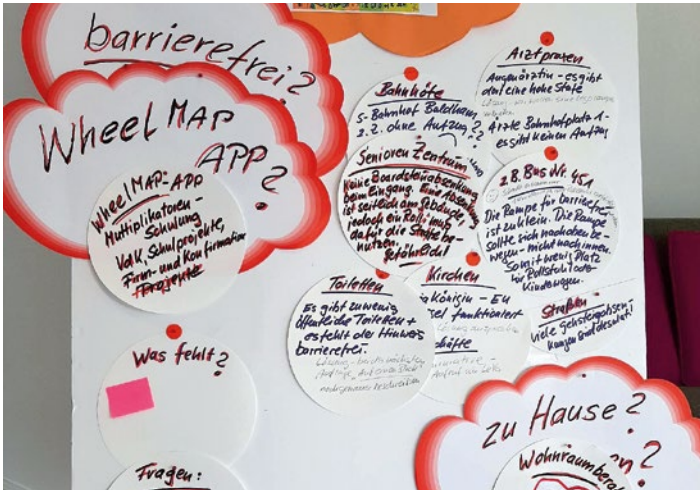 barrierefrei?
Wheel MAP
APP?
Wheel MAP-APP
Multiplikatoren-
Schulung
VdK, Schulprojekte,
Firm- und Konfirmation
Projekte
Was fehlt?
Fragen:
Bahnhöfe
S-Bahnhof Baldham
z. Z. ohne Aufzug??
Senioren Zentrum
Keine Boardsteinabsenkung
beim Eingang. Eine Absenkung
ist seitlich am Gebäude,
jedoch ein Rolli muß
dafür die Straße be-
nutzen.
Gefährlich!
Toiletten
Es gibt zu wenig
öffentliche Toiletten +
es fehlt der Hinweis
barrierefrei.
Kirchen
Königin - EU
funktioniert
Arztpraxen
Augenärztin - es gibt
dort eine hohe Stufe
Ärzte Bahnhofplatz 1-
es gibt keinen Aufzug
z.B. Bus Nr. 451
Die Rampe für barrierefrei
ist zu klein. Die Rampe
sollte sich nach oben be-
wegen - nicht nach innen
Somit wenig Platz
für Rollstuhl oder
Kinderwagen.
Straßen
Viele Gehsteigabsen-
kungen sind desolat!
zu Hause?
Wohnraumberat